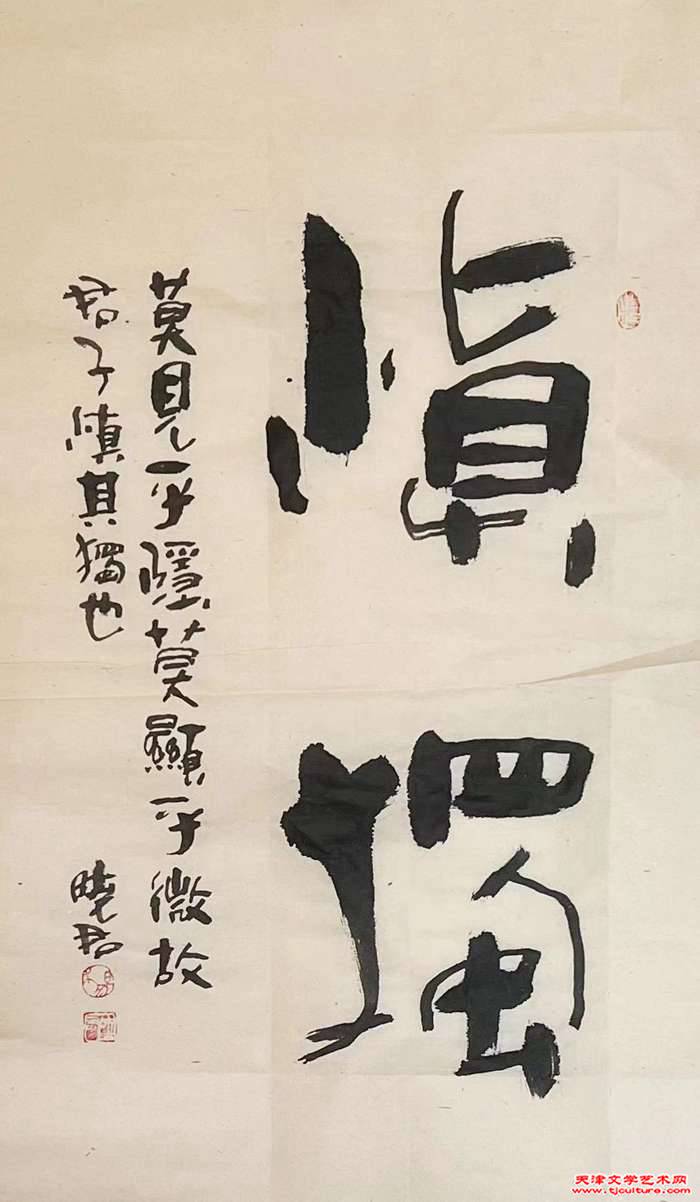 慎
獨
莫見乎隱莫顯乎微故
君子慎其獨也
曉君
天津文学艺术网
www.tjculture.com